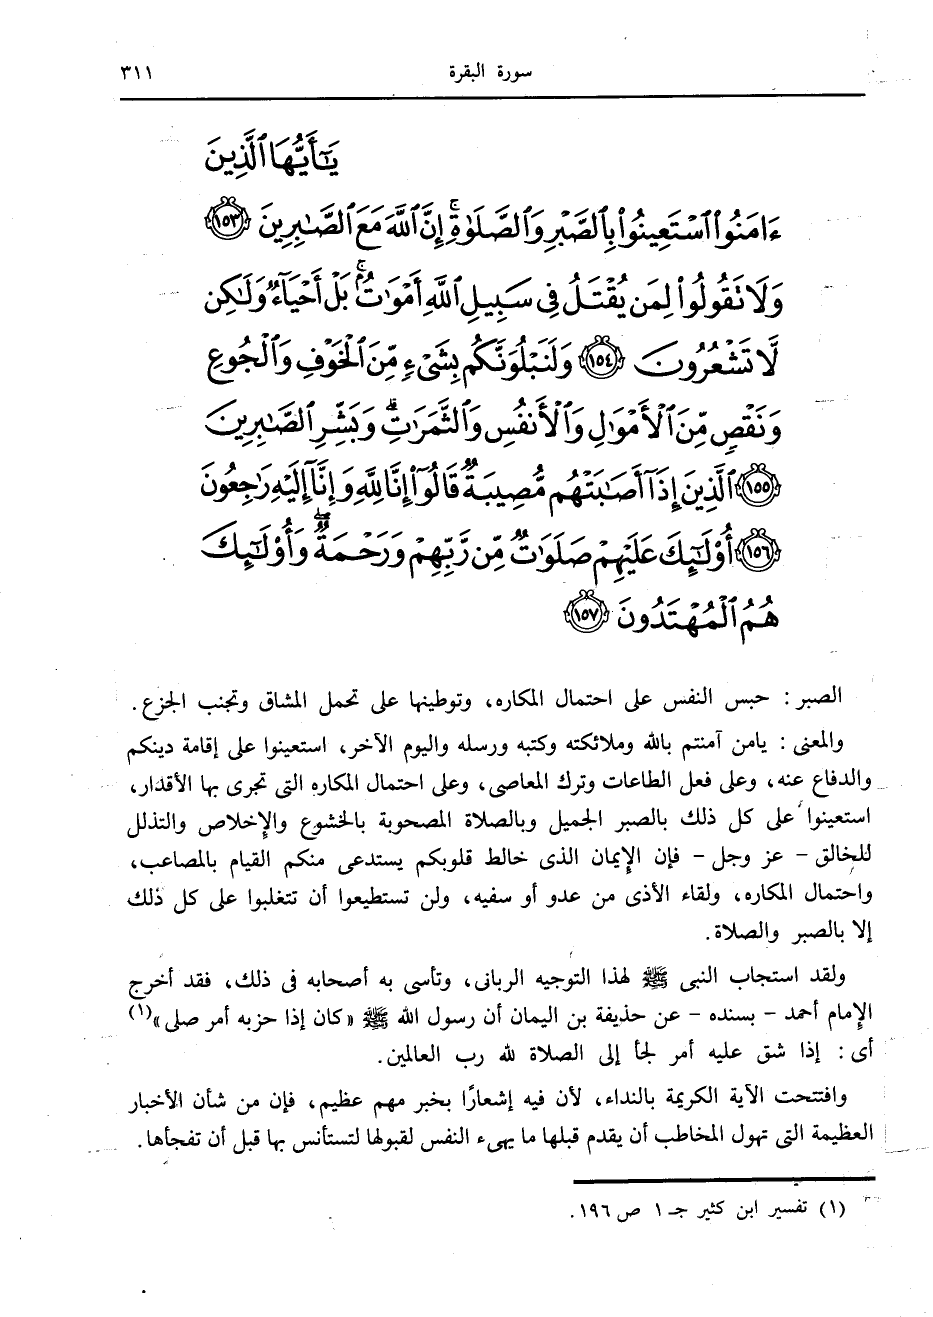 سورة البقرة ٣١١
يَٰٓأَيُّهَا ٱلَّذِينَ
ءَامَنُوا۟ ٱسْتَعِينُوا۟ بِٱلصَّبْرِ وَٱلصَّلَوٰةِ ۚ إِنَّ ٱللَّهَ مَعَ ٱلصَّٰبِرِينَ ﴿١٥٣﴾
وَلَا تَقُولُوا۟ لِمَن يُقْتَلُ فِى سَبِيلِ ٱللَّهِ أَمْوَٰتٌۢ ۚ بَلْ أَحْيَآءٌ وَلَٰكِن
لَّا تَشْعُرُونَ ﴿١٥٤﴾ وَلَنَبْلُوَنَّكُم بِشَىْءٍ مِّنَ ٱلْخَوْفِ وَٱلْجُوعِ
وَنَقْصٍ مِّنَ ٱلْأَمْوَٰلِ وَٱلْأَنفُسِ وَٱلثَّمَرَٰتِ ۗ وَبَشِّرِ ٱلصَّٰبِرِينَ
﴿١٥٥﴾ ٱلَّذِينَ إِذَآ أَصَٰبَتْهُم مُّصِيبَةٌ قَالُوٓا۟ إِنَّا لِلَّهِ وَإِنَّآ إِلَيْهِ رَٰجِعُونَ
﴿١٥٦﴾ أُو۟لَٰٓئِكَ عَلَيْهِمْ صَلَوَٰتٌ مِّن رَّبِّهِمْ وَرَحْمَةٌ ۖ وَأُو۟لَٰٓئِكَ
هُمُ ٱلْمُهْتَدُونَ ﴿١٥٧﴾
الصبر : حبس النفس على احتمال المكاره، وتوطينها على تحمل المشاق وتجنب الجزع .
والمعنى : يامن آمنتم بالله وملائكته وكتبه ورسله واليوم الآخر، استعينوا على إقامة دينكم
والدفاع عنه، وعلى فعل الطاعات وترك المعاصى، وعلى احتمال المكاره التى تجرى بها الأقدار،
استعينوا على كل ذلك بالصبر الجميل وبالصلاة المصحوبة بالخشوع والإخلاص والتذلل
للخالق - عز وجل - فإن الإيمان الذى خالط قلوبكم يستدعى منكم القيام بالمصاعب،
واحتمال المكاره، ولقاء الأذى من عدو أو سفيه، ولن تستطيعوا أن تتغلبوا على كل ذلك
إلا بالصبر والصلاة.
ولقد استجاب النبى ﷺ لهذا التوجيه الربانى، وتأسى به أصحابه فى ذلك، فقد أخرج
الإمام أحمد - بسنده - عن حذيفة بن اليمان أن رسول الله ﷺ «كان إذا حزبه أمر صلى»(١)
أى : إذا شق عليه أمر لجأ إلى الصلاة لله رب العالمين.
وافتتحت الآية الكريمة بالنداء، لأن فيه إشعارًا بخبر مهم عظيم، فإن من شأن الأخبار
العظيمة التى تهول المخاطب أن يقدم قبلها ما يهىء النفس لقبولها لتستأنس بها قبل أن تفجأها.
(١) تفسير ابن كثير جـ ١ ص ١٩٦.